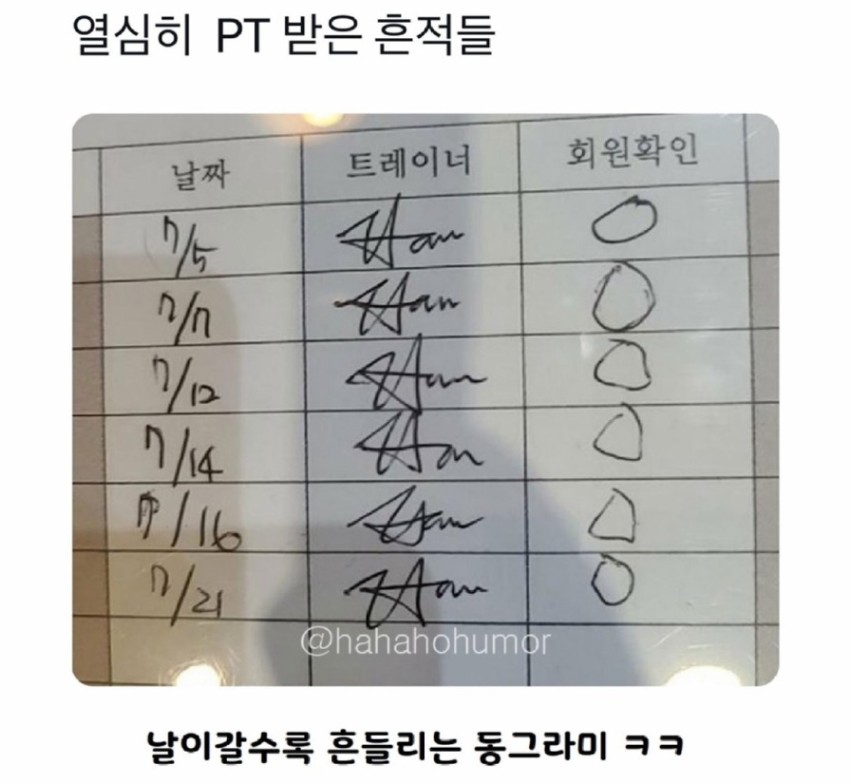 열심히 PT 받은 흔적들
날짜 트레이너 회원확인
7/5 Han O
7/7 Han O
7/12 Han O
7/14 Han O
7/16 Han O
7/21 Han O
@hahahohumor
날이갈수록 흔들리는 동그라미 ㅋㅋ